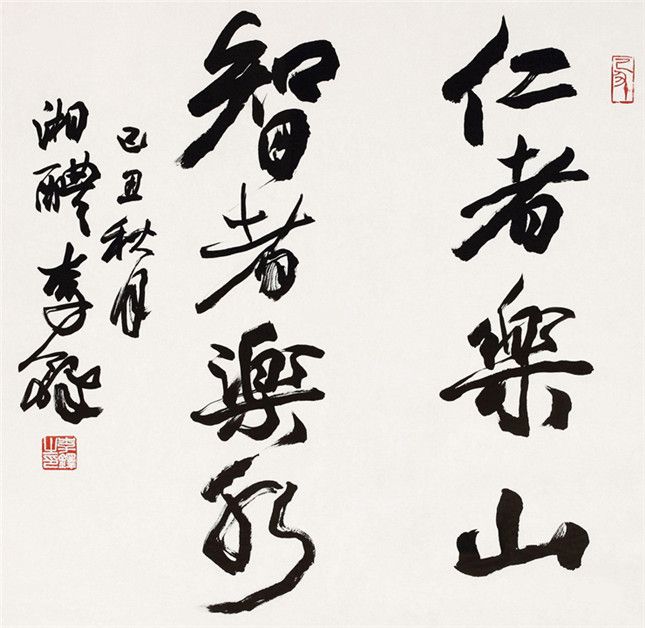 仁者樂山
智者樂水
己丑秋月
湘醴李鐸
李鐸之印